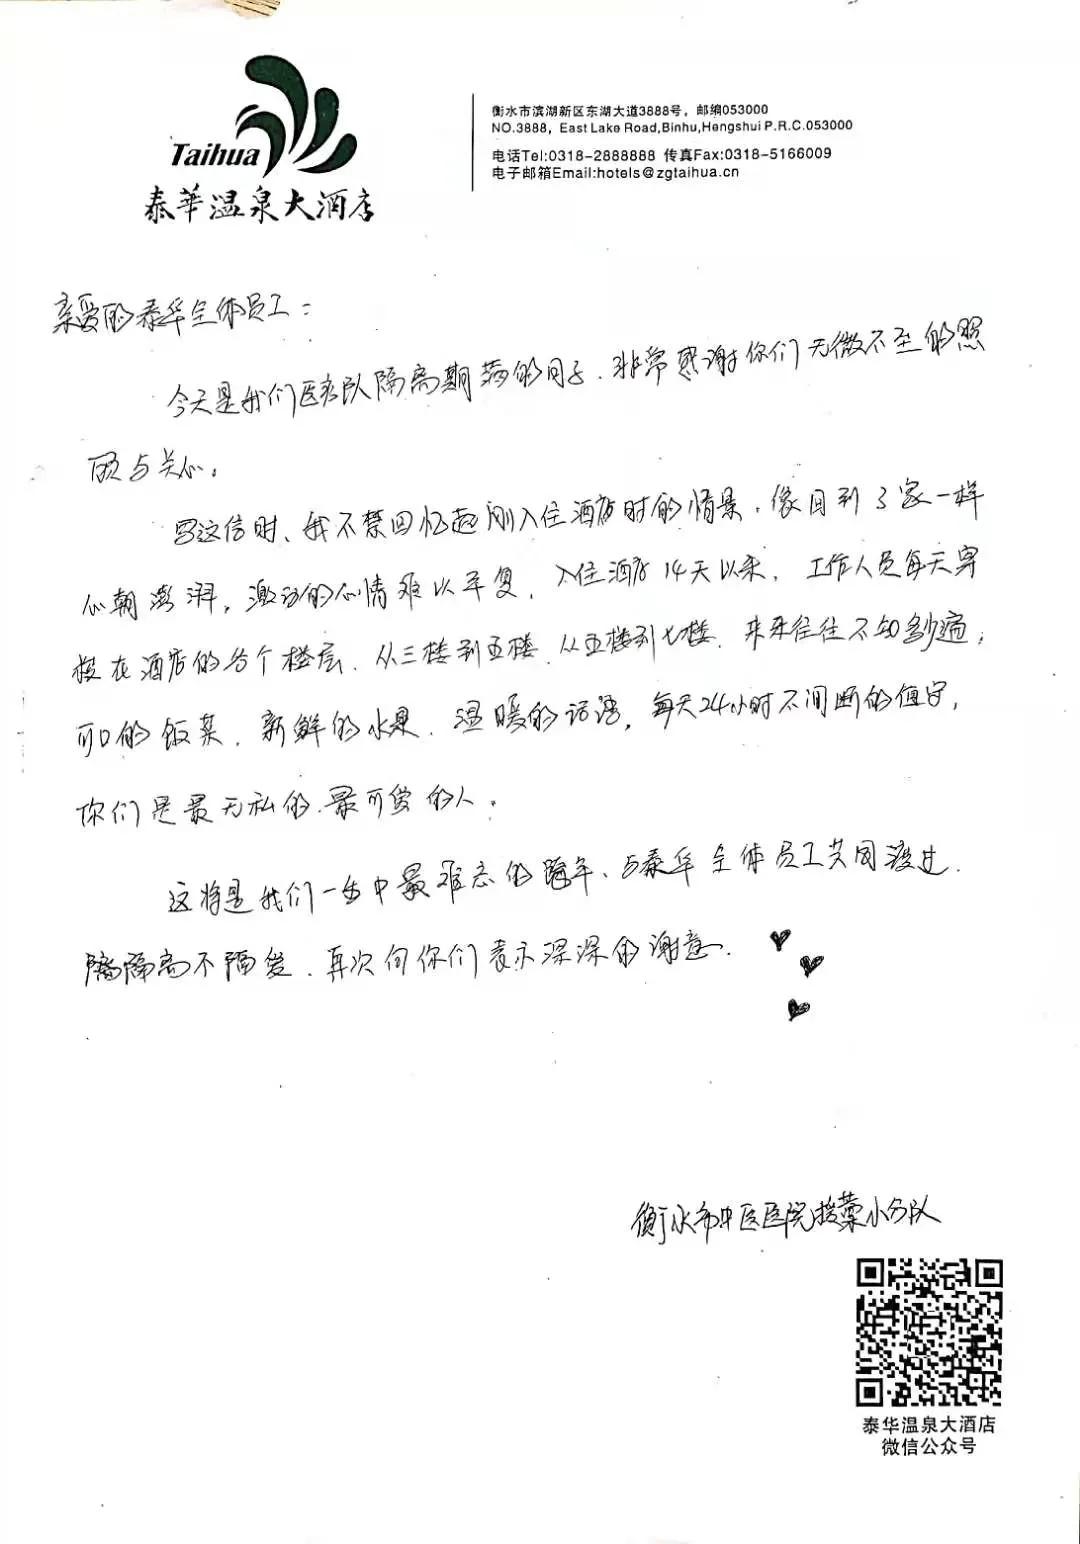 Taihua
泰華温泉大酒店
衡水市滨湖新区东湖大道3888号，邮编053000
NO.3888，East Lake Road,Binhu,Hengshui P.R.C.053000
电话Tel:0318-2888888 传真Fax:0318-5166009
电子邮箱Email:hotels@zgtaihua.cn
亲爱的泰华全体员工：
今天是我们医疗队隔离期满的日子、非常感谢你们无微不至的照
顾与关心。
写这信时、我不禁回忆起刚入住酒店时的情景，像回到了家一样
心朝澎湃，激动的心情难以平复，入住酒店14天以来，工作人员每天穿
梭在酒店的各个楼层、从三楼到五楼、从五楼到七楼、来来往往不知多少遍；
可口的饭菜、新鲜的水果、温暖的话语，每天24小时不间断的值守，
你们是最无私的、最可爱的人。
这将是我们一生中最难忘的跨年、与泰华全体员工共同渡过.
隔离不隔爱、再次向你们表示深深的谢意.
衡水市中医医院援藁小分队
泰华温泉大酒店
微信公众号